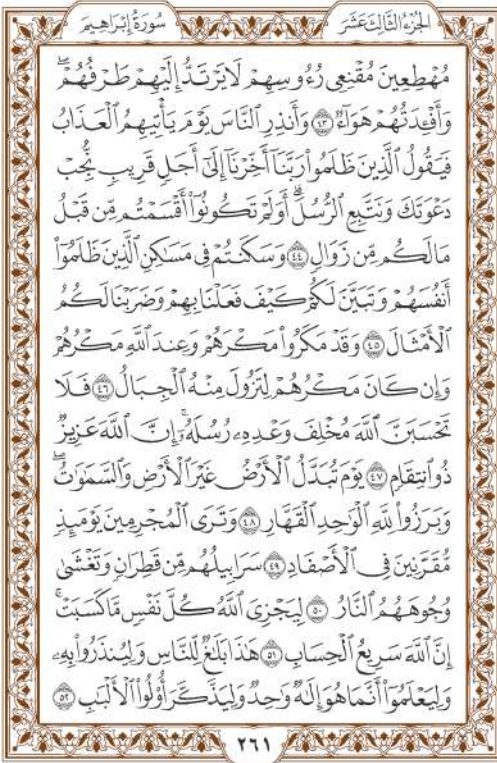 الجزء الثالث عشر
سورة إبراهيم
مُهْطِعِينَ مُقْنِعِى رُءُوسِهِمْ لَا يَرْتَدُّ إِلَيْهِمْ طَرْفُهُمْ ۖ
وَأَفْـِٔدَتُهُمْ هَوَآءٌ ۝٤٣ وَأَنذِرِ ٱلنَّاسَ يَوْمَ يَأْتِيهِمُ ٱلْعَذَابُ
فَيَقُولُ ٱلَّذِينَ ظَلَمُوا۟ رَبَّنَآ أَخِّرْنَآ إِلَىٰٓ أَجَلٍ قَرِيبٍ نُّجِبْ
دَعْوَتَكَ وَنَتَّبِعِ ٱلرُّسُلَ ۗ أَوَلَمْ تَكُونُوٓا۟ أَقْسَمْتُم مِّن قَبْلُ
مَا لَكُم مِّن زَوَالٍ ۝٤٤ وَسَكَنتُمْ فِى مَسَٰكِنِ ٱلَّذِينَ ظَلَمُوٓا۟
أَنفُسَهُمْ وَتَبَيَّنَ لَكُمْ كَيْفَ فَعَلْنَا بِهِمْ وَضَرَبْنَا لَكُمُ
ٱلْأَمْثَالَ ۝٤٥ وَقَدْ مَكَرُوا۟ مَكْرَهُمْ وَعِندَ ٱللَّهِ مَكْرُهُمْ
وَإِن كَانَ مَكْرُهُمْ لِتَزُولَ مِنْهُ ٱلْجِبَالُ ۝٤٦ فَلَا
تَحْسَبَنَّ ٱللَّهَ مُخْلِفَ وَعْدِهِۦ رُسُلَهُۥٓ ۗ إِنَّ ٱللَّهَ عَزِيزٌ
ذُو ٱنتِقَامٍ ۝٤٧ يَوْمَ تُبَدَّلُ ٱلْأَرْضُ غَيْرَ ٱلْأَرْضِ وَٱلسَّمَٰوَٰتُ ۖ
وَبَرَزُوا۟ لِلَّهِ ٱلْوَٰحِدِ ٱلْقَهَّارِ ۝٤٨ وَتَرَى ٱلْمُجْرِمِينَ يَوْمَئِذٍ
مُّقَرَّنِينَ فِى ٱلْأَصْفَادِ ۝٤٩ سَرَابِيلُهُم مِّن قَطِرَانٍ وَتَغْشَىٰ
وُجُوهَهُمُ ٱلنَّارُ ۝٥٠ لِيَجْزِىَ ٱللَّهُ كُلَّ نَفْسٍ مَّا كَسَبَتْ ۚ
إِنَّ ٱللَّهَ سَرِيعُ ٱلْحِسَابِ ۝٥١ هَٰذَا بَلَٰغٌ لِّلنَّاسِ وَلِيُنذَرُوا۟ بِهِۦ
وَلِيَعْلَمُوٓا۟ أَنَّمَا هُوَ إِلَٰهٌ وَٰحِدٌ وَلِيَذَّكَّرَ أُو۟لُوا۟ ٱلْأَلْبَٰبِ ۝٥٢
٢٦١